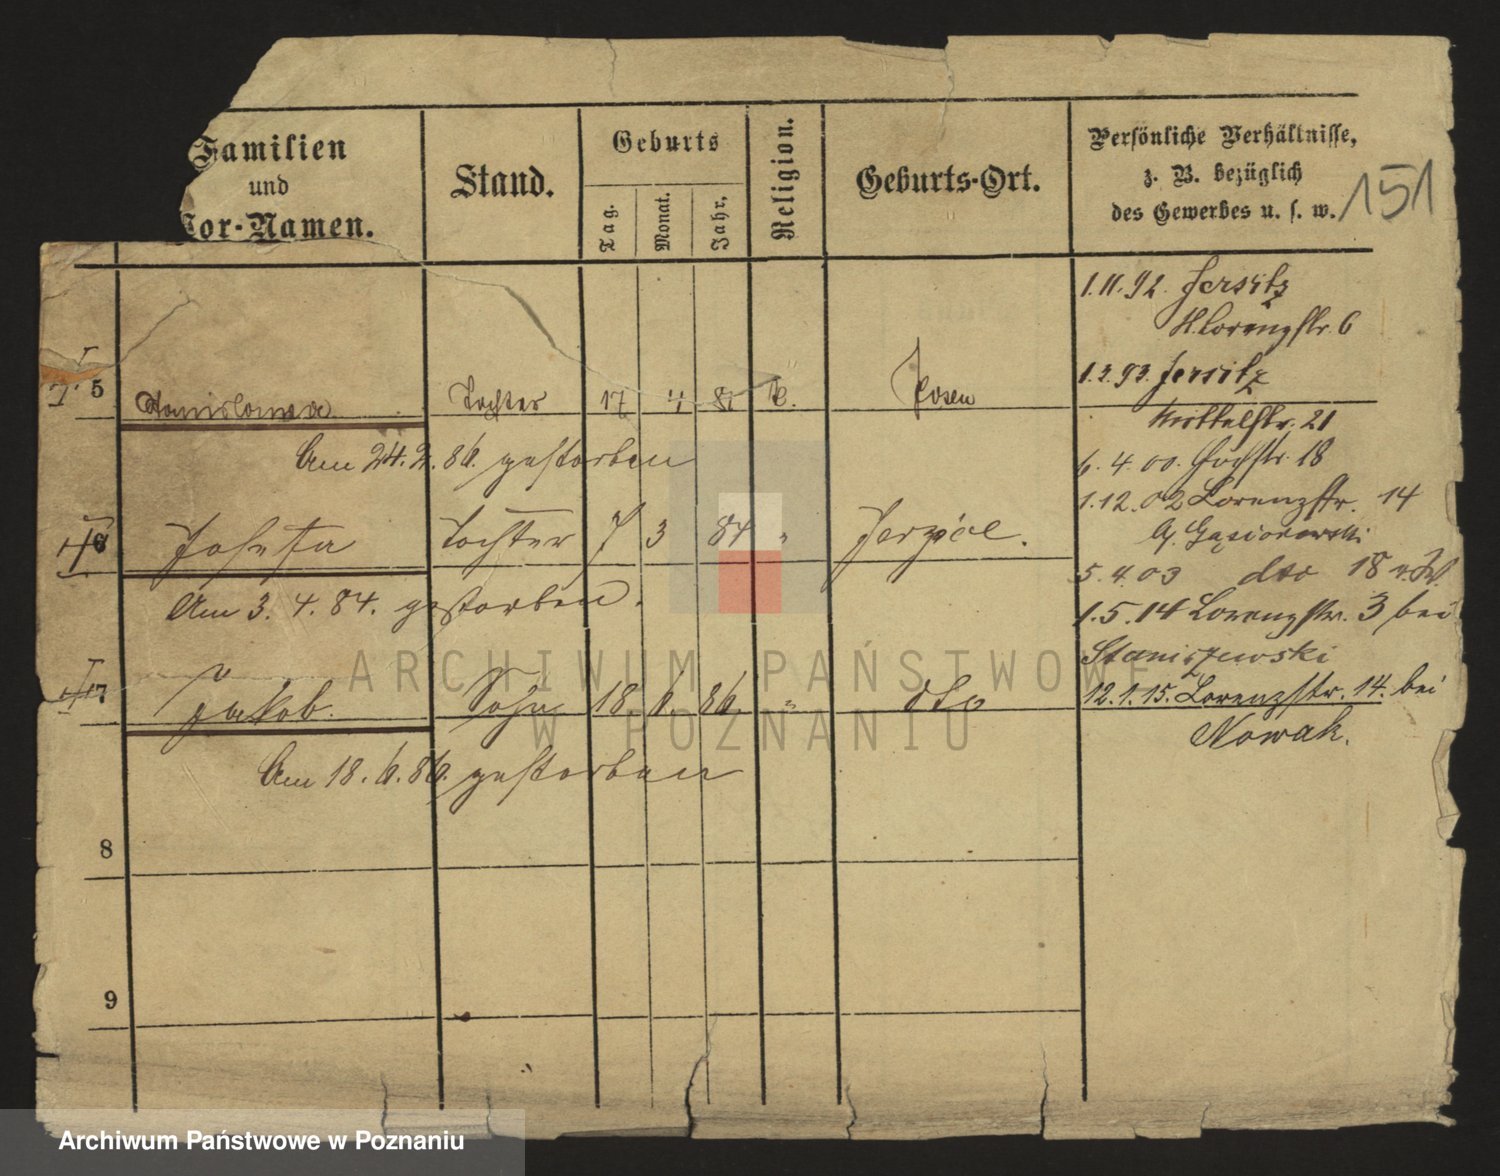 Familien
und
Vor-Namen.
Stand.
Geburts
Tag.
Monat.
Jahr,
Religion.
Geburts-Ort.
Persönliche Verhältnisse,
z. B. bezüglich
des Gewerbes u. s. w.
151
1.11.92. Jersitz
Lorenzstr. 6
1.2.93. Jersitz
21
5 Stanislawa Tochter 17 4 Posen
Am 24.2.86. gestorben
6.4.00. Hochstr. 18
1.12.02 Lorenzstr. 14
Gąsiorowski
6 Josefa Tochter 7 3 84 " Jerzyce.
5.4.03 dto 18
Am 3.4.84. gestorben.
1.5.14 Lorenzstr. 3 bei
Staniszewski
7 Jakob. Sohn 18. 6. 86. " dto
12.1.15. Lorenzstr. 14. bei
Nowak.
Am 18.6.86. gestorben
8
9
ARCHIWUM PAŃSTWOWE
W POZNANIU
Archiwum Państwowe w Poznaniu